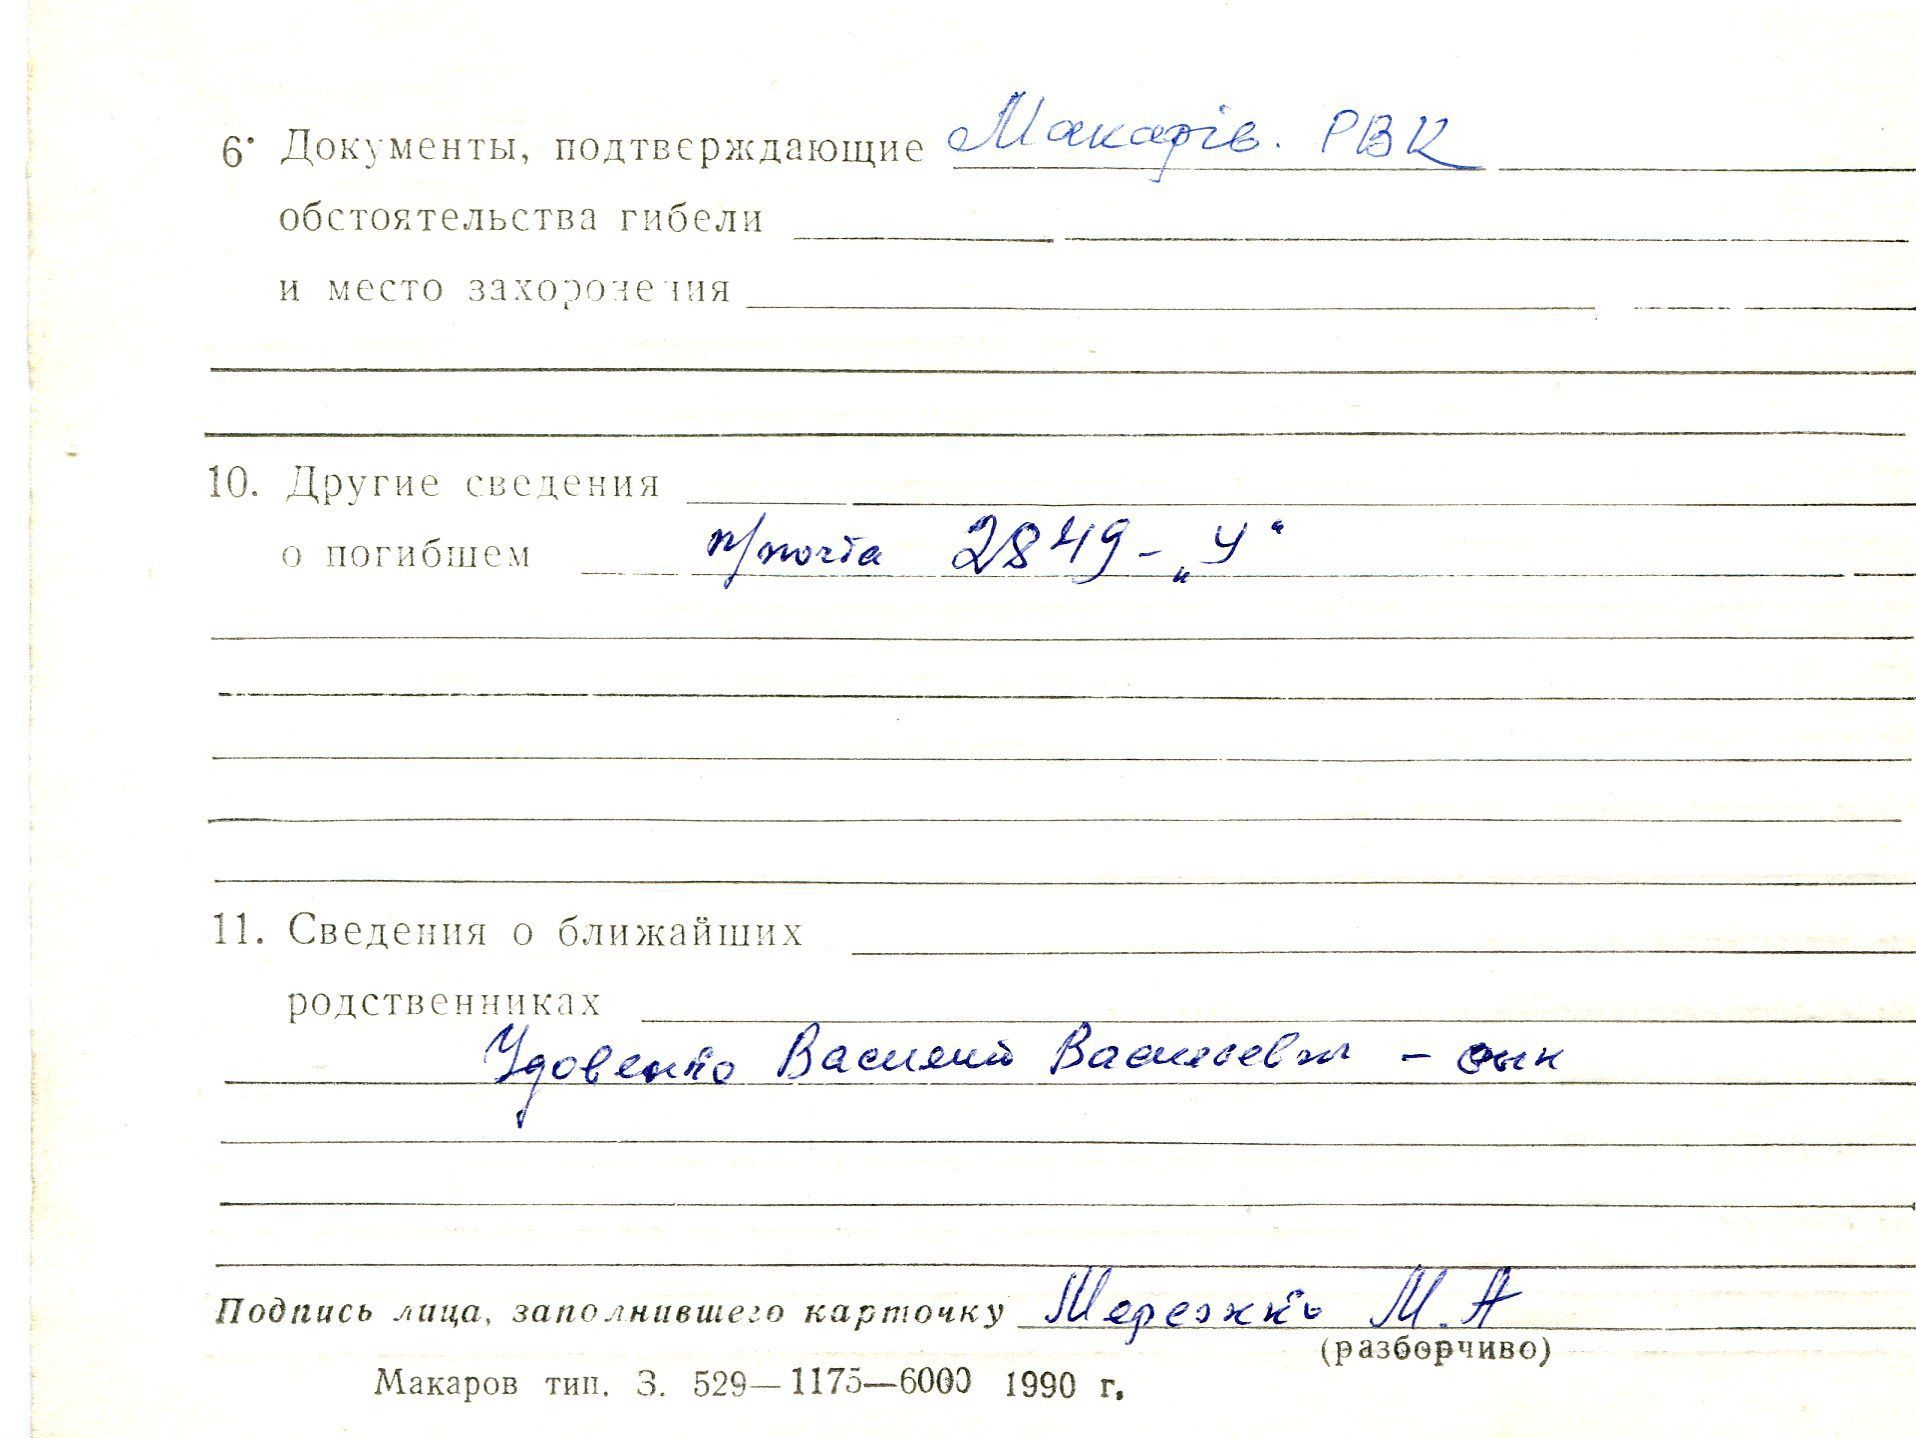 6. Документы, подтверждающие Макарів. РВК
обстоятельства гибели
и место захоронения
10. Другие сведения
о погибшем п/почта 2849-„У“
11. Сведения о ближайших
родственниках
Удовенко Василий Васильевич - сын
Подпись лица, заполнившего карточку Мережко М.А
(разборчиво)
Макаров тип. З. 529—1175—6000 1990 г.